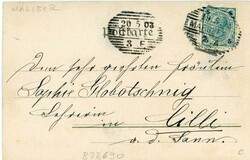 MARIBOR
20 5 03
3 F
Dem sehr geehrten Fräulein
Sophie Globotschnig
Lehrerin
in Cilli
a. d. Sann.
828690
C